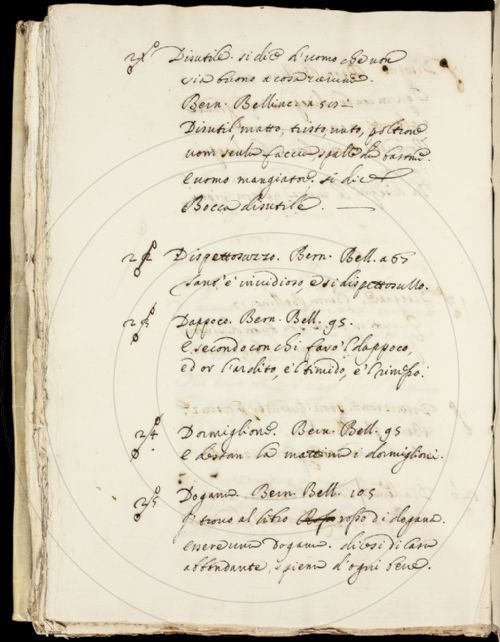 Disutile. si dice d'uomo che non
sia buono a cosa veruna.
Bern. Bellinc. a 50
Disutil, matto, tristo, unto, poltrone,
uom senza faccia spalle da bastone.
e uomo mangiatore. si dice
Bocca disutile.
22 Dispettosuzzo. Bern. Bell. a 67
sano è invidioso, e si dispettosullo.
23 Dappoco. Bern. Bell. 95.
e secondo con chi favo'l dappoco,
ed or l'ardito, e'l timido, e'l rimesso.
24 Dormiglione. Bern. Bell. 95
e destan la mattina i dormiglioni.
25 Dogana. Bern. Bell. 105
trovo al libro rosso di dogana.
essere una Dogana. dicesi di casa
abbondante, e piena d'ogni bene.